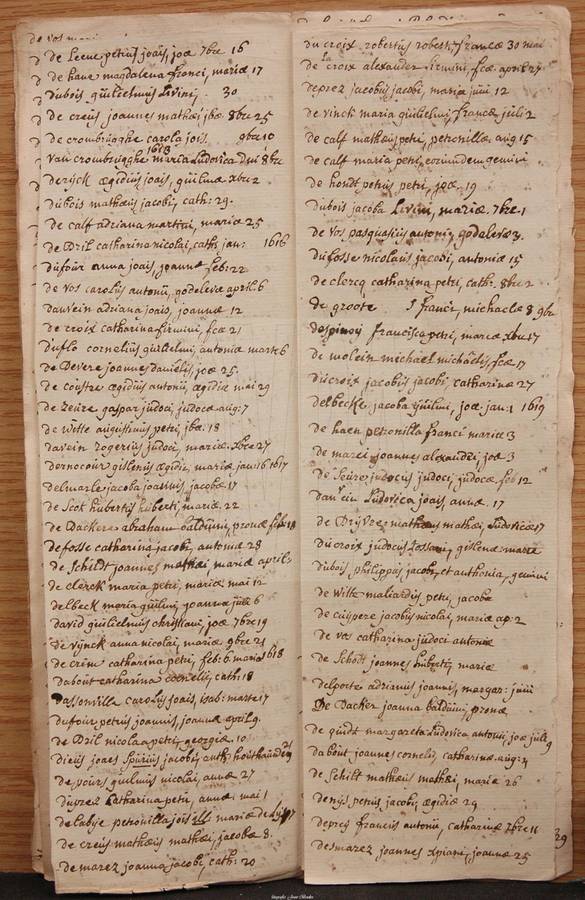 de Leeue petrus joais, joæ 7bre 16
de haue magdalena franci, mariæ 17
Dubois guilielmus Livini, 30
de creus joannes mathæi jbæ 8bre 25
de crombrugghe carola jois. 9bre 10
van crombrugghe maria Ludovica 8bre
1613
Deryck ægidius joais, guilmæ xbre 2
Dubois matheus jacobi, cath: 29.
De calf adriana martini, mariæ 25
de Bril catharina nicolai, cath: jan: 1616
dufour anna joais joannæ feb: 22
de vos carolus antonii, godelevæ april. 6
dauvein adriana joais, joannæ 12
de croix catharina firmini, fcæ 21
duflo cornelius guilielmi, antoniæ marte 6
de Devere joannes danielis, joæ 25.
de coustre ægidius antonii, ægidiæ mai 29
de zeure gaspar judoci, judocæ aug: 7
de witte augustinus petri, jbæ. 18
davein rogerius judoci, mariæ. xbre 27
dernocour gislenus ægidii, mariæ jan 16 1617
delmarle jacoba joannis, jacobæ 17
de Scot hubertus huberti, mariæ. 22
de Backere abraham balduini, pronæ feb 18
defosse catharina jacobi, antoniæ 28
de Schildt joannes mathæi mariæ april:
de clerck maria petri, mariæ mai 12
delbeck maria guilmi, joannæ julii 6
david guilielmus christiani, joæ 7bre 19
de vynck anna nicolai, mariæ 9bre 21
de crim catharina petri, feb: 6. maria 1618
dabout catharina cornelii, cath: 18
dassonvilla carolus joais, isab: marte 17
dufour petrus joannis, joannæ april 9.
de Bril nicolaa petri, georgiæ. 10
dierus joaes spurius jacobi, cath: houthauwers
de pours guilmus nicolai, annæ 27
duprez catharina petri, annæ mai 1
de labye petronilla jois mariæ de
de creus mathæus mathæi, jacobæ 8.
de marez joanna jacobi, cath: 20
du croix robertus roberti, francæ 30 mai
de la croix alexander firmini, fcæ april 27
deprez jacobus jacobi, mariæ junii 12
de vinck maria guilielmi, francæ julii 2
de calf mathæus petri, petronillæ aug 15
de calf maria petri, eorumdem gemini
de hondt petrus petri, joæ. 19
Dubois jacoba Livini, mariæ. 7bre 1
de vos pasquasius antonii, godelevæ 3.
dufosse nicolaus jacobi, antoniæ 15
de clercq catharina petri, cath: 8bre 2
de groote franci, michaelæ 8 9br
despinoy francisca petri, mariæ xbre 17
de molein michael michaelis, fcæ 17
du croix jacobus jacobi, catharinæ 27
delbecke jacoba guilmi, joæ jan: 1 1619
de haen petronilla franci mariæ 3
de marei joannes alexandri, joæ 3
de Seure judocus judoci, judocæ feb 12
dauvein Ludovica joais, annæ. 17
de Bruyere mathæus mathæi, Ludovicæ 17
du croix judocus Lossan, gislenæ marte
dubois philippus jacobi, et anthonia, gemini
de Witte maliardus petri, jacobæ
de cuypere jacobus nicolai, mariæ ap: 2
de vos catharina judoci antoniæ
de Schodt joannes huberti, mariæ
delporte adrianus joannis, margar: junii
De Backer joanna balduini, pronæ
de quidt margareta Ludovica antonii, joæ julii 9
dabout joannes cornelii, catharinæ aug:
de Schilt mathæus mathæi, mariæ 26
denys petrus jacobi, ægidiæ 29
deprez francus antonii, catharinæ 7bre 11
desmarez joannes xpiani, joannæ 25
29